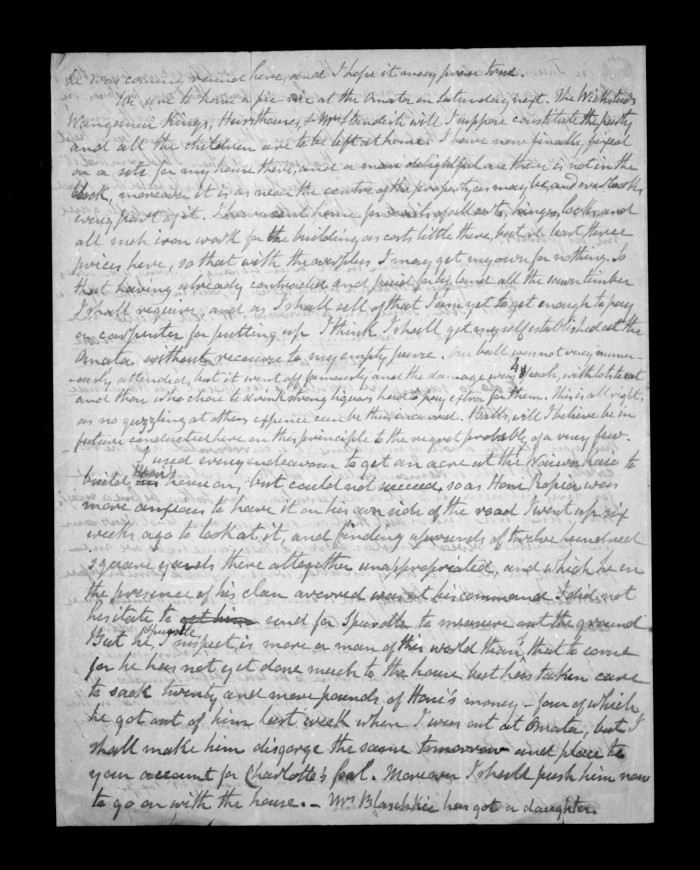 he was coming round here, and I hope it may prove true.
We are to have a pic nic at the Omata on Saturday next. The Wicksteeds
Wangamui Kings, Hursthouses, & Mrs Standish will I suppose constitute the party
and all the children are to be left at home. I have now finally, fixed
on a site for my house there, and a more delightful one there is not in the
block, moreover it is as near the centre of the property as may be, and overlooks
every part of it. I have sent home for nails of all sorts, hinges, locks and
all such iron work for the building as costs little there, but at least three
prices here, so that with the surplus I may get my own for nothing. So
that having already contracted and paid for by land all the sawn timber
I shall require, and as I shall sell of that I am yet to get enough to pay
a carpenter for putting up I think I shall get myself established at the
Omata without recourse to my empty purse. Our ball was not very numer-
-ously attended, but it went off famously and the damage was 4/ each, with lots to eat
and those who chose to drink strong liquors had to pay extra for them. This is all right,
as no guzzling at others expence can be thus incurred. Balls, will I believe be in
future conducted here on this principle to the regret probably of a very few.
I used every endeavour to get an acre at the Waiwakaio to
build Hone's house on, but could not succeed, so as Hone Ropiha was
more anxious to have it on his own side of the road I went up six
weeks ago to look at it, and finding upwards of twelve hundred
square yards there altogether unappropriated, and which he in
the presence of his clan averred was at his command I did not
hesitate to get him send for Spurdle to measure out the ground
But he, Spurdle I suspect, is more a man of this world than that to come
for he has not yet done much to the house but has taken care
to sack twenty and more pounds of Hone's money – four of which
he got out of him last week when I was out at Omata, but I
shall make him disgorge the same tomorrow and place to
your account for Charlotte's foal. Moreover I shall push him now
to go on with the house. – Mrs Blaschkie has got a daughter.